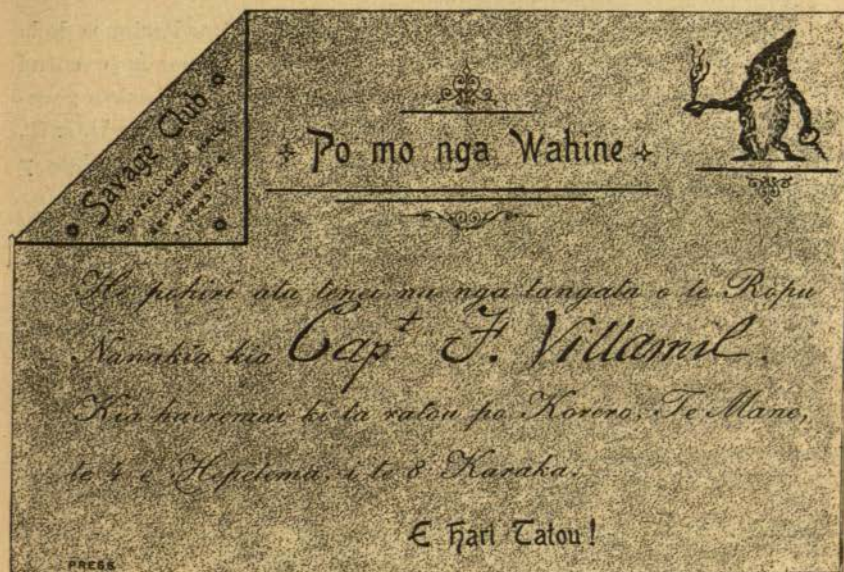 Savage Club
ODDFELLOWS' HALL
SEPTEMBER 4
1893
Po mo nga Wahine
He pohiri atu tenei na nga tangata o te Ropu
Nanakia kia Capt F. Villamil.
Kia haeremai ki ta ratou po Korero, Te Mane,
te 4 o Hepetema, i te 8 Karaka.
E Hari Tatou!
PRESS